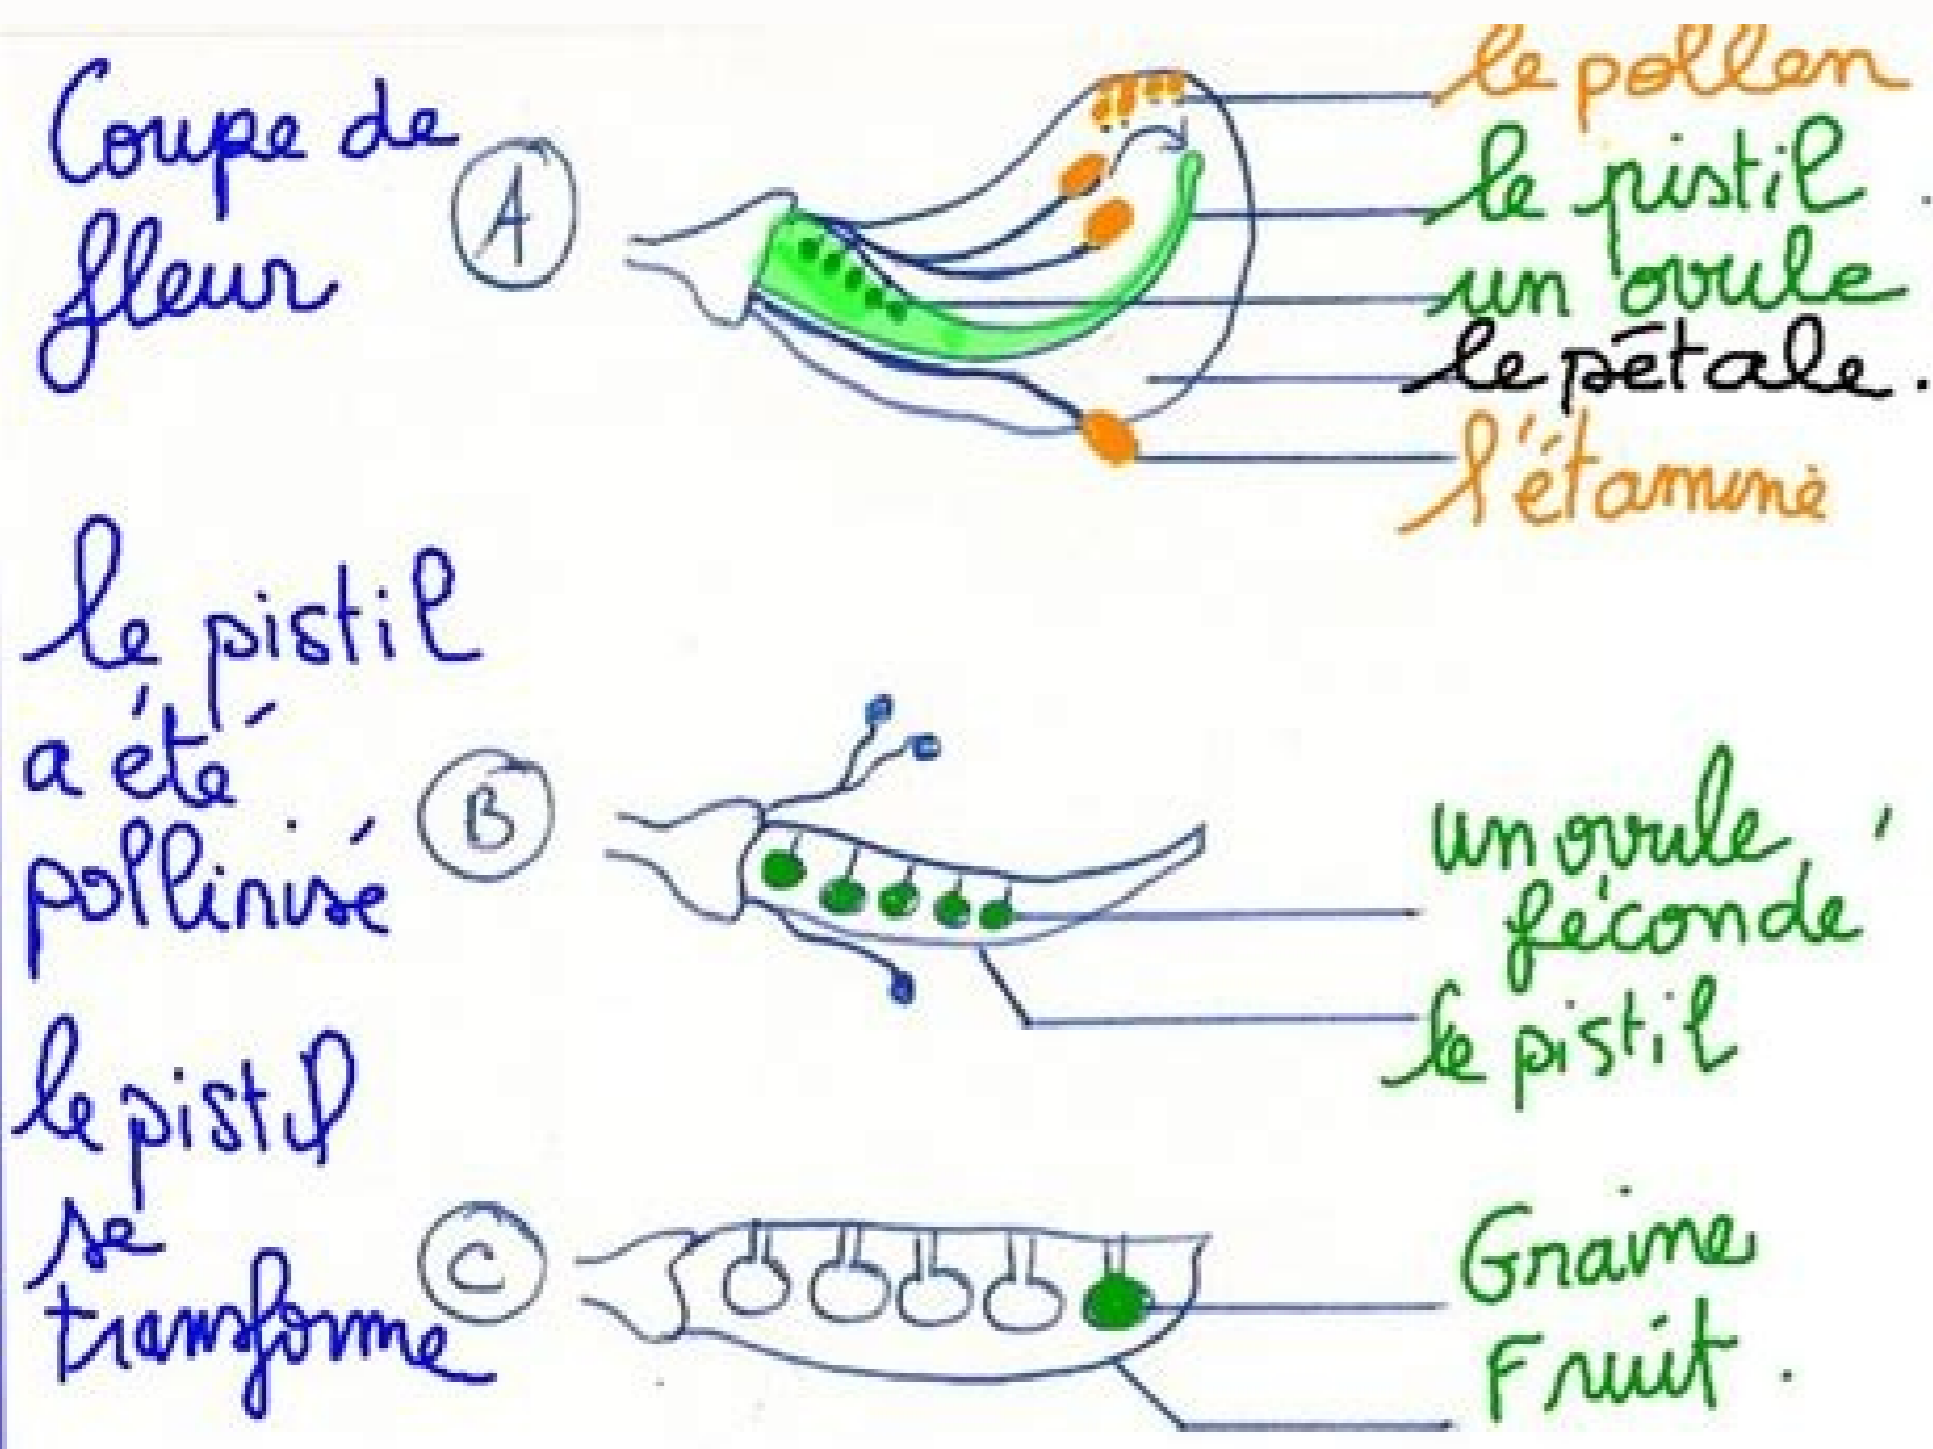 Coupe de
fleur
A
le pollen
le pistil
un ovule
le pétale.
l'étamine
le pistil
a été
pollinisé
B
un ovule
fécondé
le pistil
le pistil
se
transforme
C
Graine
Fruit.